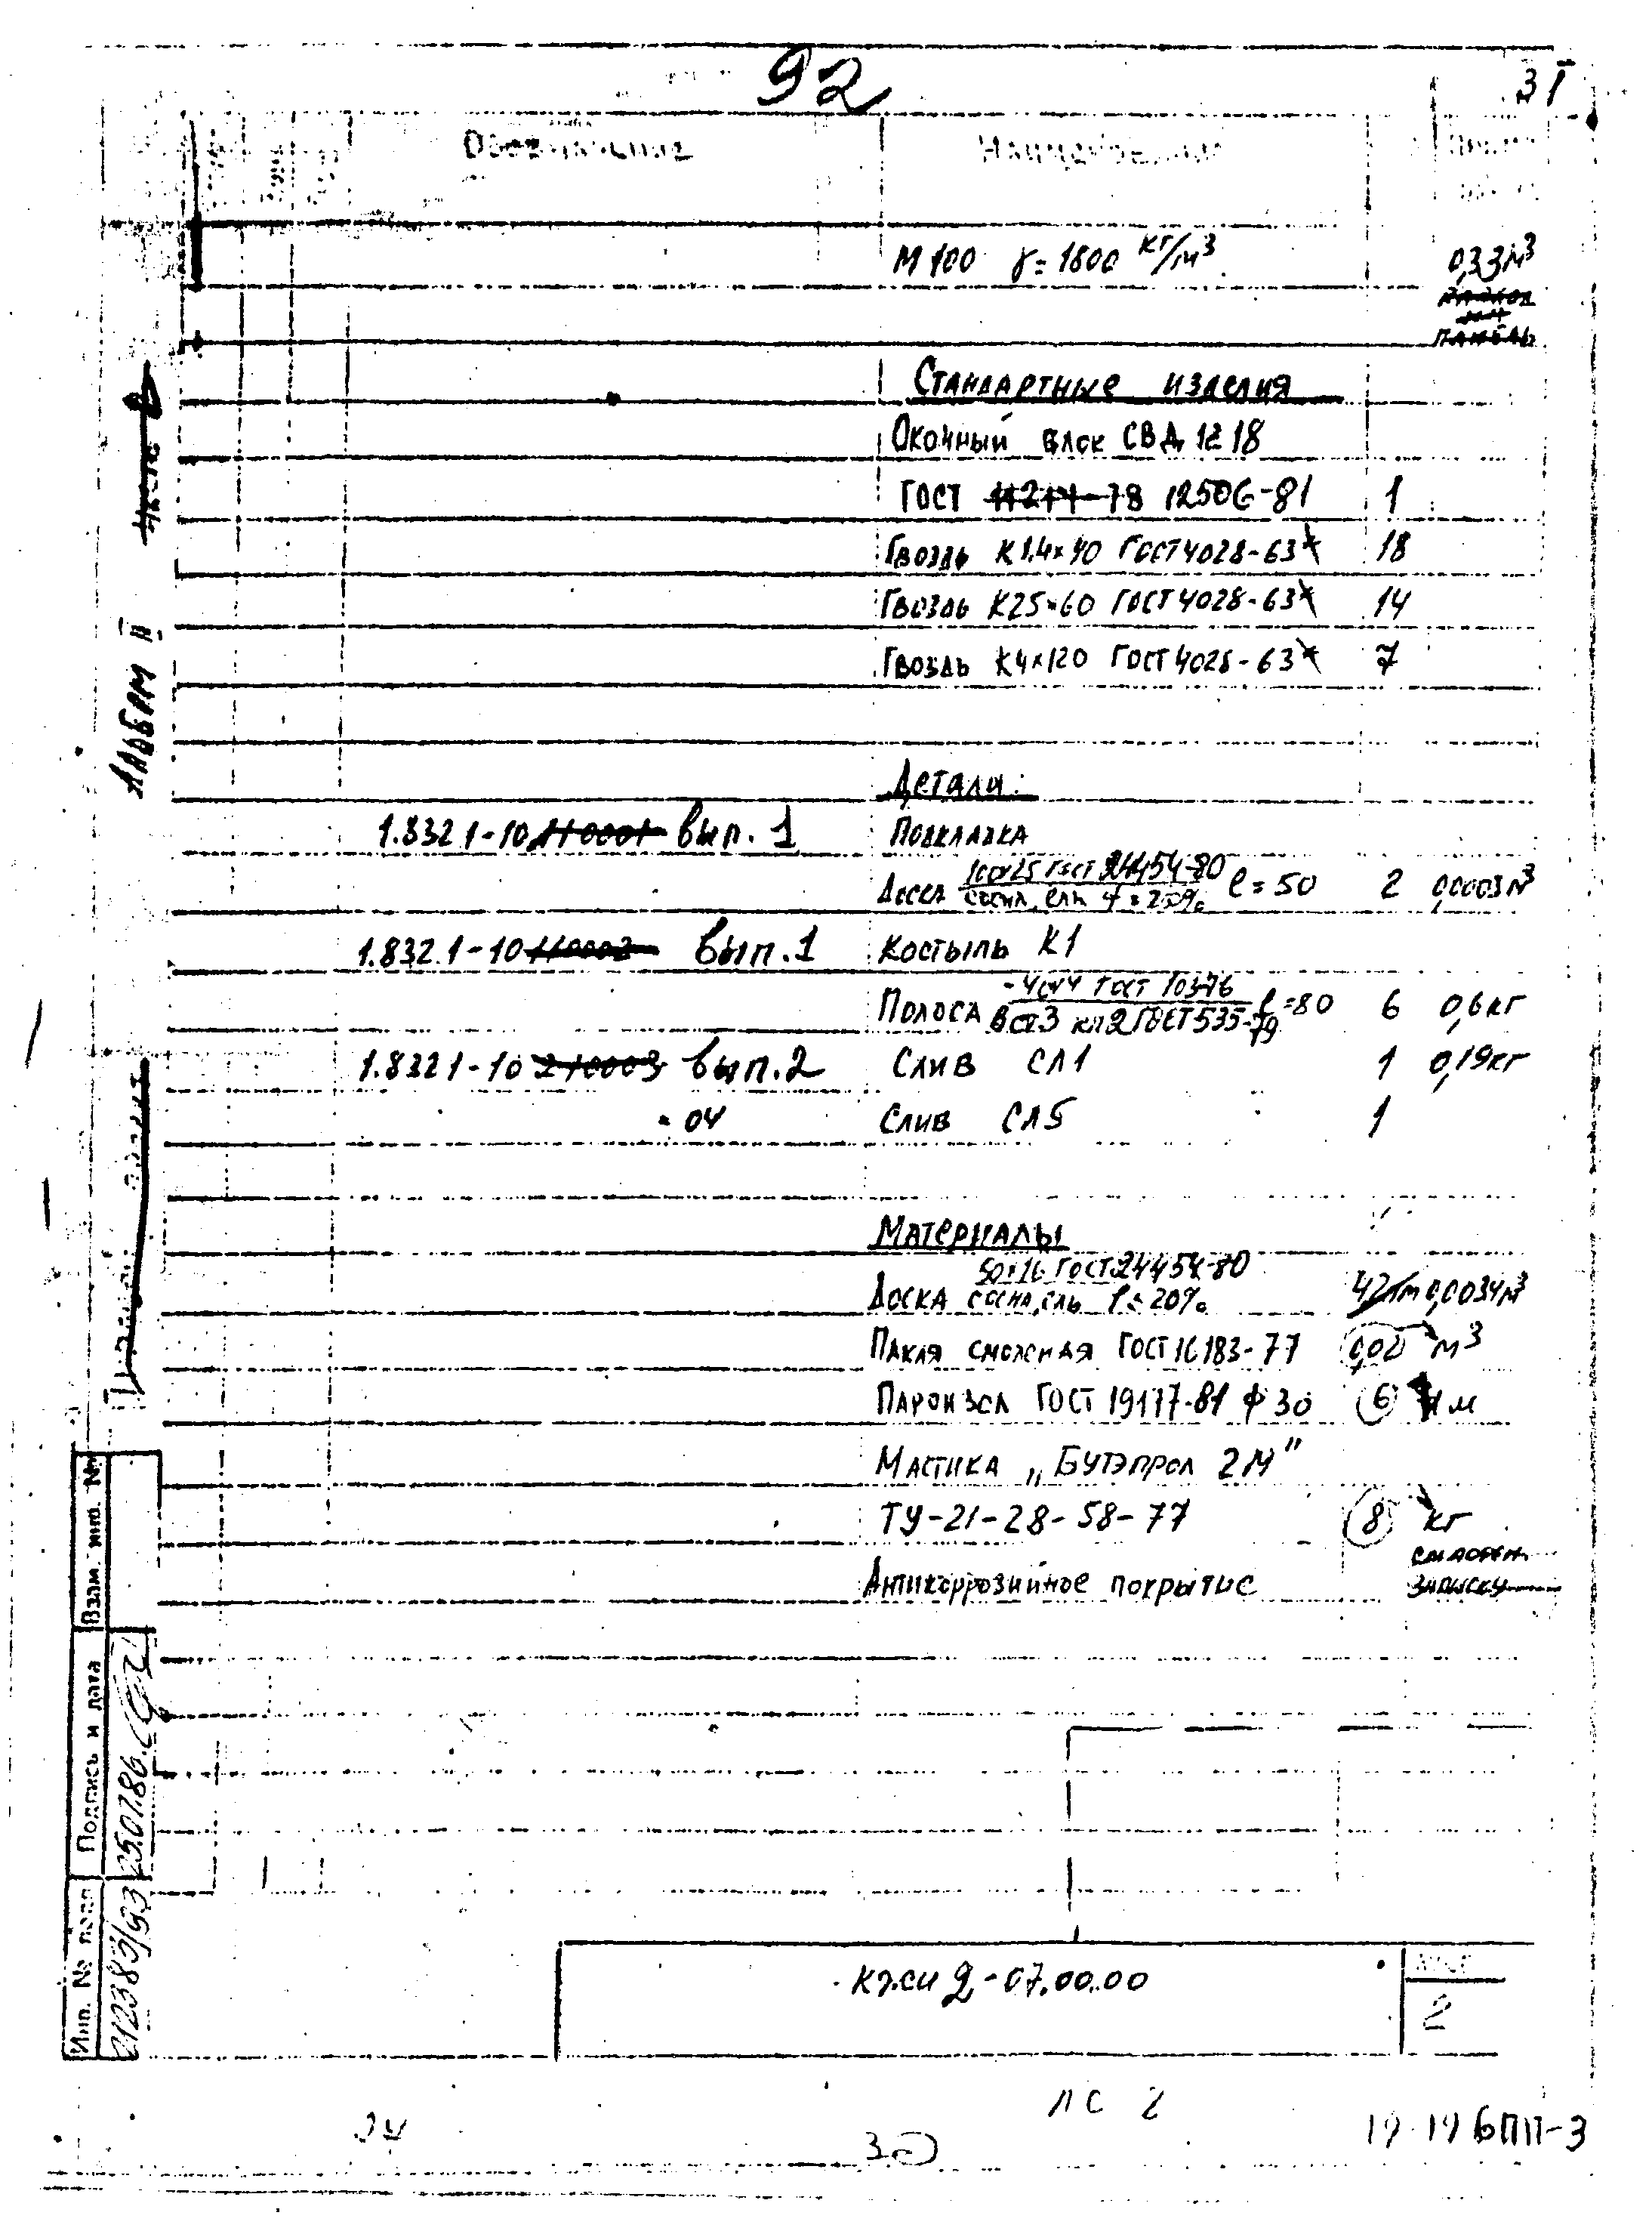 92
31
Обозначение
Наименование
М 100 γ = 1800 кг/м³ 0,33 м³
панель
Стандартные изделия
Окочный блок СВД 12 18
ГОСТ 11214-78 12506-81 1
Гвоздь К1,4×40 ГОСТ 4028-63* 18
Гвоздь К25×60 ГОСТ 4028-63* 14
Гвоздь К4×120 ГОСТ 4028-63* 7
Детали:
1.832 1-10 110001 вып. 1 Подкладка
Доска 100×25 ГОСТ 24454-80 ℓ = 50 2 0,0003 м³
сосна, ель = 20%
1.832.1-10 110002 вып.1 Костыль К1
Полоса -40×4 ГОСТ 103-76 ℓ=80 6 0,6 кг
ВСт3 кп2 ГОСТ 535-79
1.832 1-10 210003 вып.2 Слив СЛ1 1 0,19 кг
- 04 Слив СЛ5 1
Материалы
50×16 ГОСТ 24454-80
Доска сосна, ель = 20% 42 0,0034 м³
Пакля смоленая ГОСТ 16183-77 0,02 м³
Пароизол ГОСТ 19177-81 ф 30 6 м
Мастика „Бутэпрол 2М"
ТУ-21-28-58-77 8 кг
Антикоррозийное покрытие
записку
Альбом II
Взам. инв. №
Подпись и дата
25.07.86.
Инв. № подл
212389/93
-07.00.00
2
ЛС 2
34
30
19 19 6ПП-3